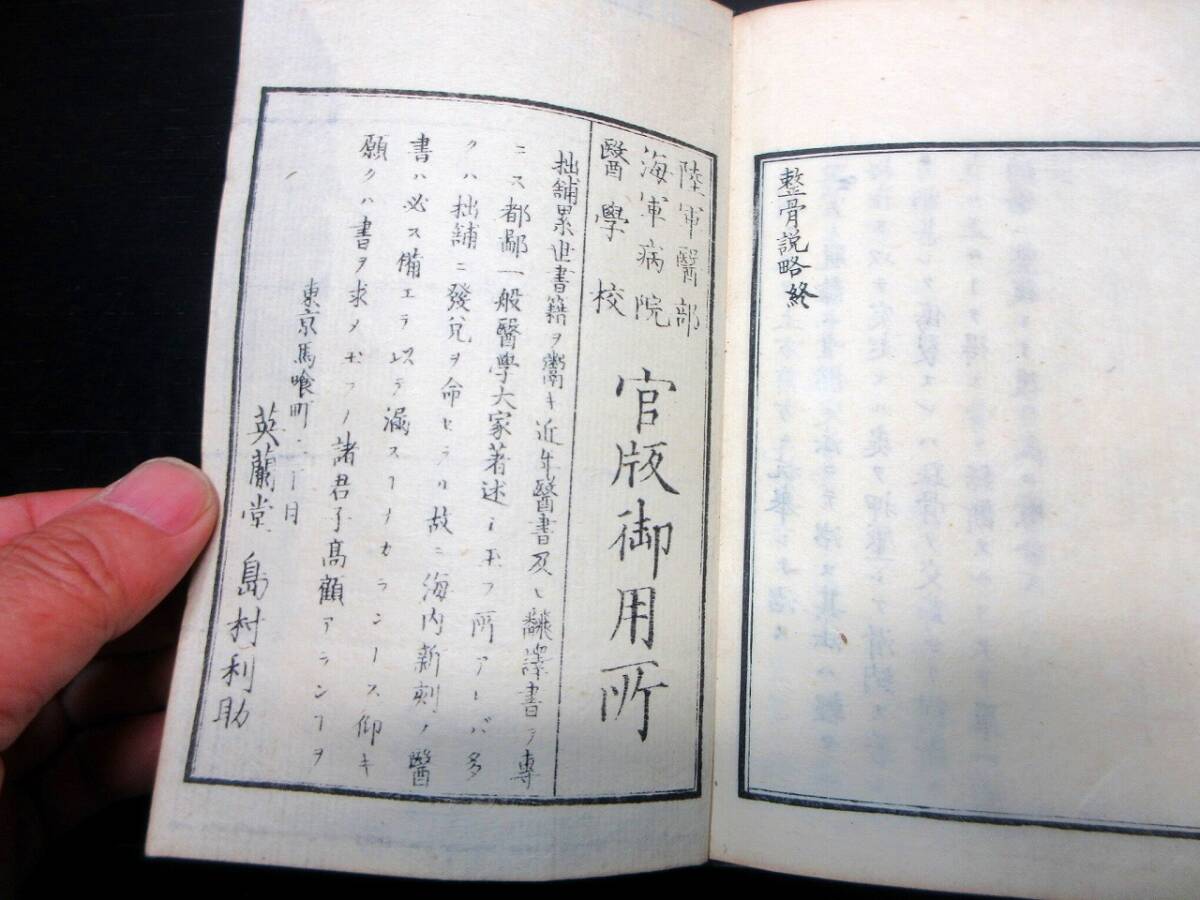 整骨説略終
陸軍醫部
海軍病院
醫學校
官版御用所
拙舖累世書籍ヲ鬻キ近年醫書及ヒ飜譯書ヲ專
ニス都鄙一般醫學大家著述シ玉フ所アレバ多
クハ拙舖ニ發兌ヲ命セラル故ニ海内新刻ノ醫
書ハ必ス備エラスヿナカランース仰キ
願クハ書ヲ求メ玉フノ諸君子高顧アランヿヲ
東京馬喰町二丁目
英蘭堂 島村利助